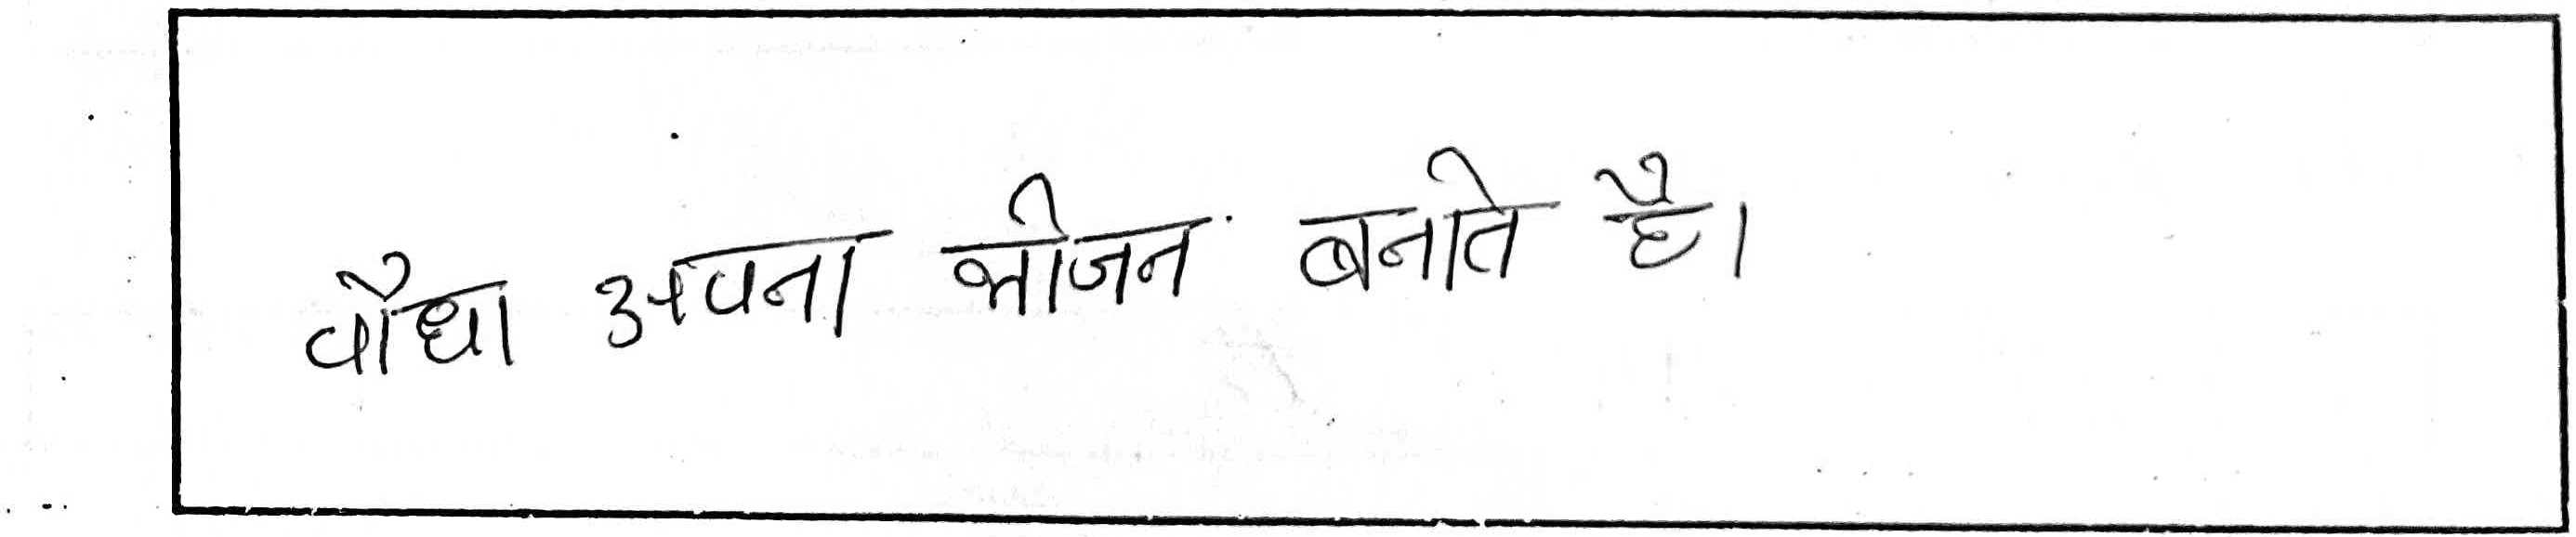 पौधा अपना भोजन बनाते है।